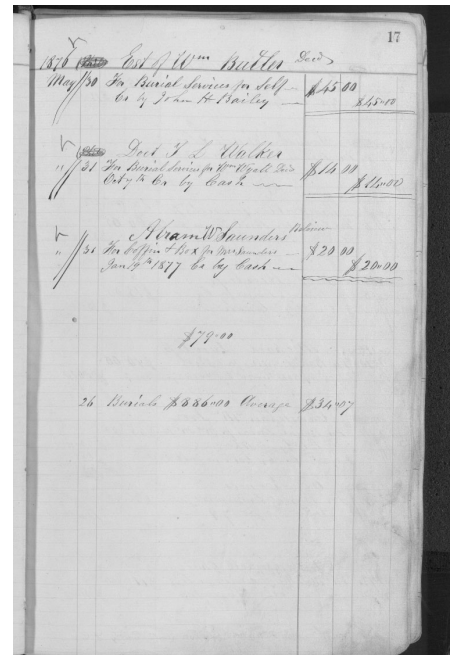 17
1876 Est of Wm Butler Decd
May 30 For Burial Services for Self $45 00
Cr by John H Bailey $45=00
Doct T L Walker
" 31 For Burial Services for Wm Wyatt Decd $14 00
Oct 7th Cr by Cash $14=00
Abram W Saunders
" 31 For Coffin & Box for Mrs Saunders $20 00
Jan 19th 1877 Cr by Cash $20=00
$79=00
26 Burials $886=00 Average $34=07